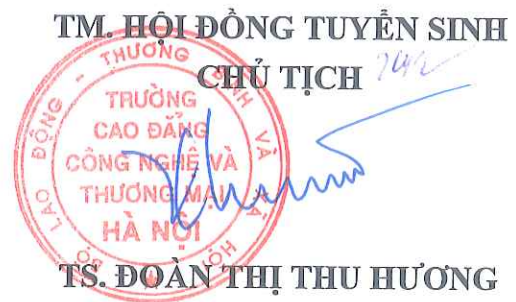 TM. HỘI ĐỒNG TUYỂN SINH
CHỦ TỊCH
BỘ LAO ĐỘNG - THƯƠNG BINH VÀ XÃ HỘI
TRƯỜNG
CAO ĐẲNG
CÔNG NGHỆ VÀ
THƯƠNG MẠI
HÀ NỘI
TS. ĐOÀN THỊ THU HƯƠNG